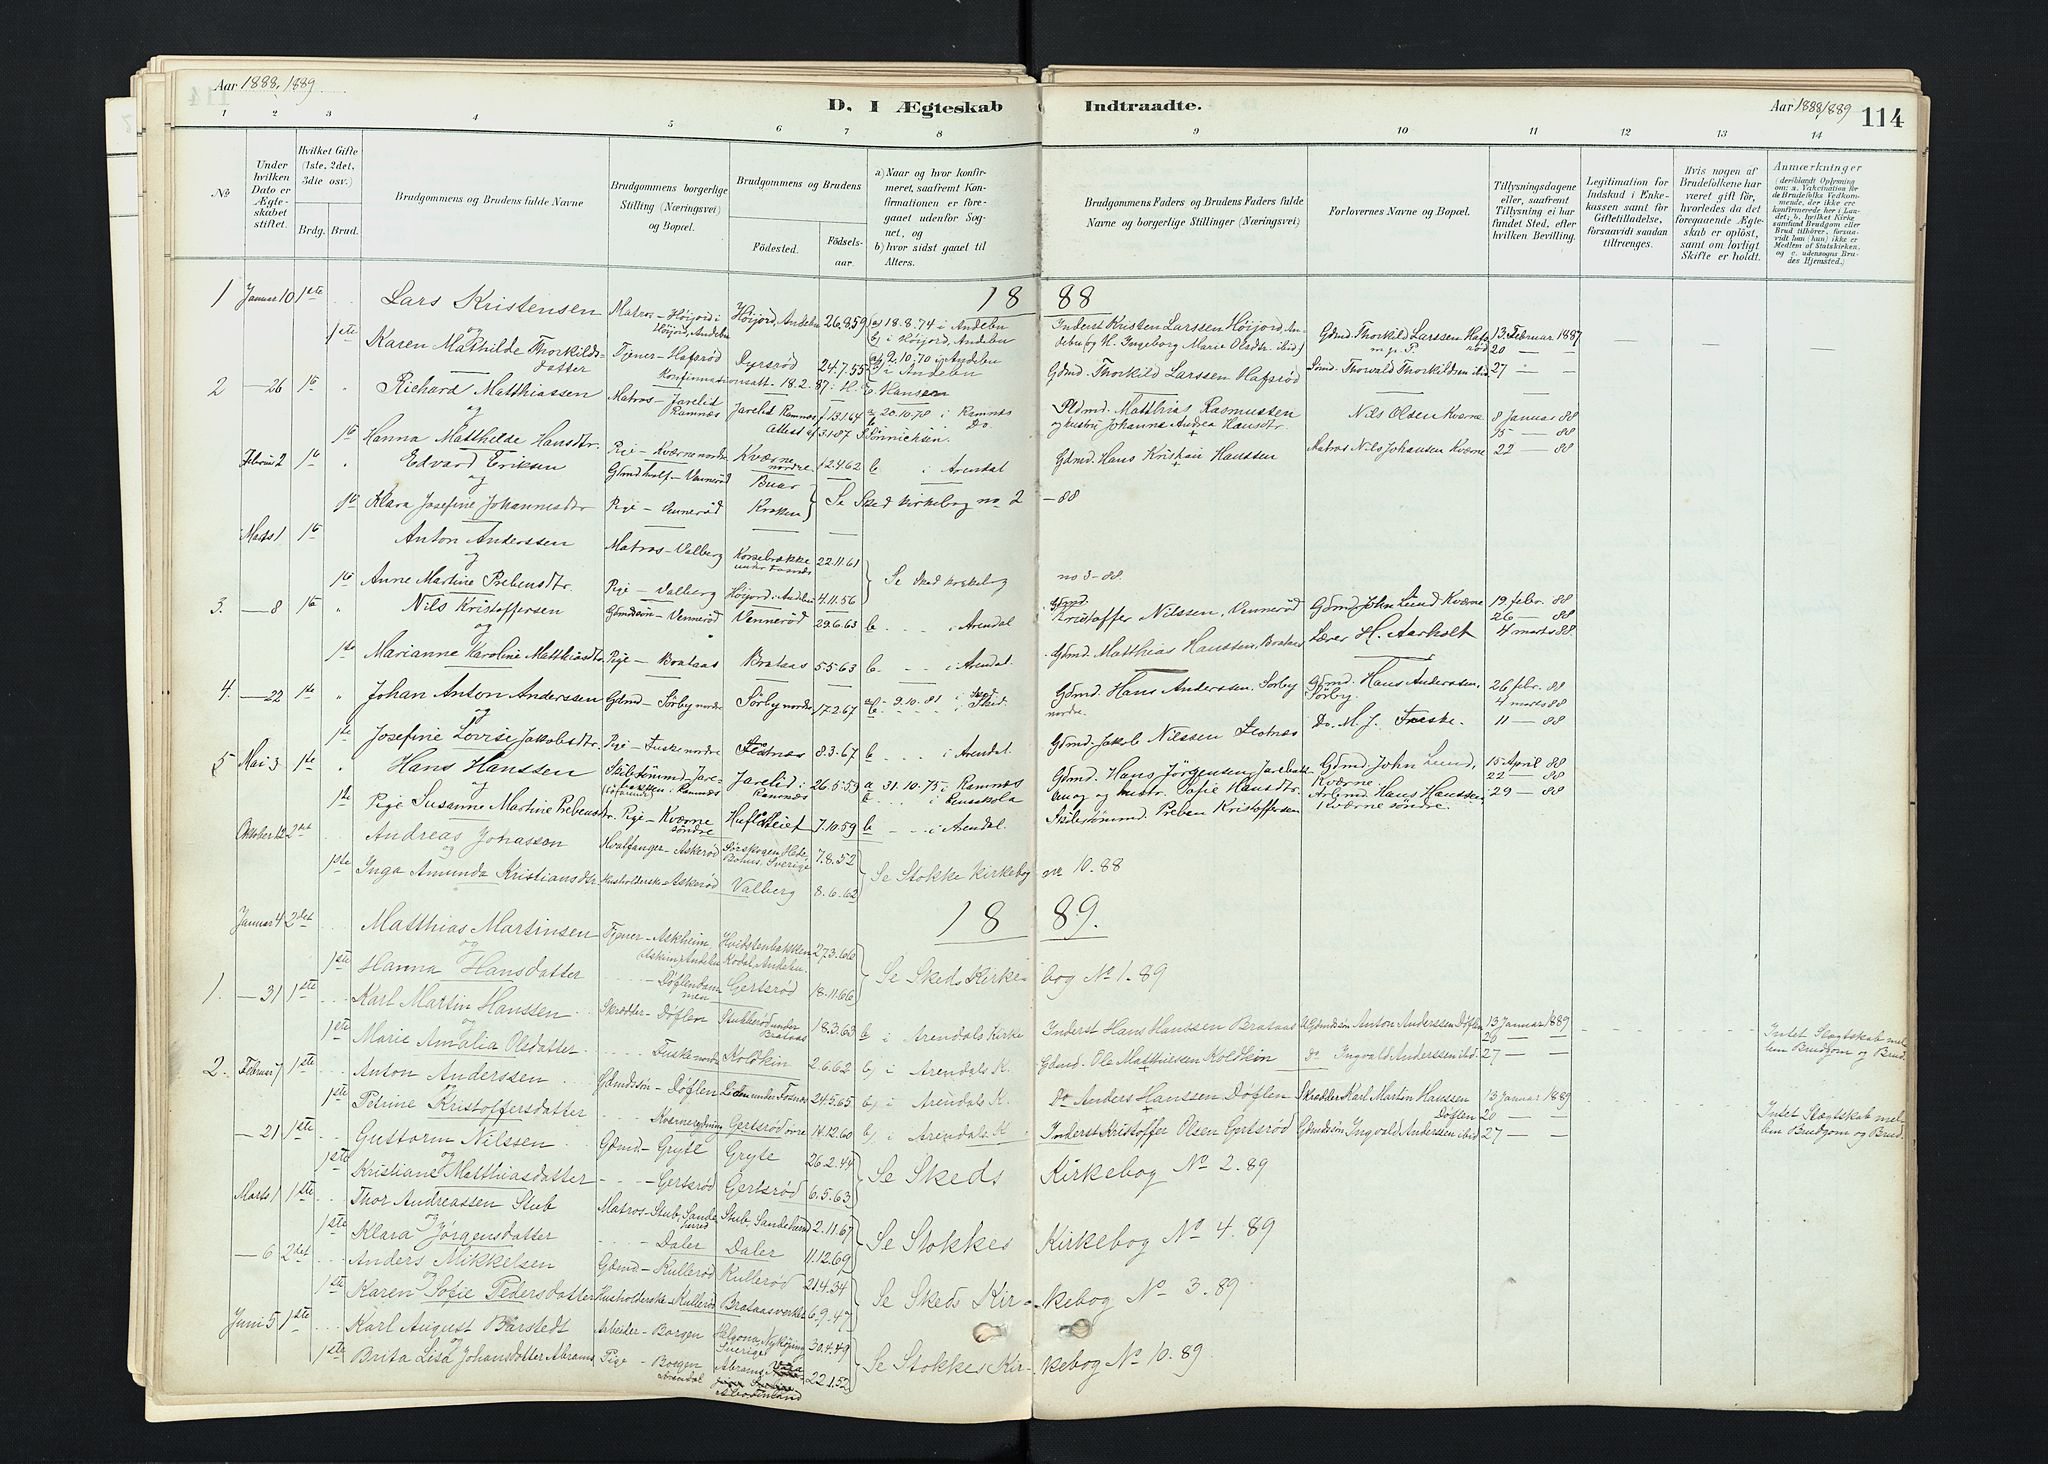 Aar 1888, 1889
D. I Ægteskab Indtraadte.
Aar 1888/1889 114
1 2 3 4 5 6 7 8 9 10 11 12 13 14
No
Under hvilken Dato er Ægteskabet stiftet.
Hvilket Gifte (1ste, 2det, 3die osv.)
Brdg. Brud.
Brudgommens og Brudens fulde Navne
Brudgommens borgerlige Stilling (Næringsvei) og Bopæl.
Brudgommens og Brudens
Fødested. Fødselsaar.
a) Naar og hvor konfirmeret, saafremt Konfirmationen er foregaaet udenfor Sognet, og
b) hvor sidst gaaet til Alters.
Brudgommens Faders og Brudens Faders fulde Navne og borgerlige Stillinger (Næringsvei)
Forlovernes Navne og Bopæl.
Tillysningsdagene eller, saafremt Tillysning ei har fundet Sted, efter hvilken Bevilling.
Legitimation for Indskud i Enkekassen samt for Giftetilladelse, forsaavidt saadan tiltrænges.
Hvis nogen af Brudefolkene har været gift før, hvorledes da det foregaaende Ægteskab er opløst, samt om lovligt Skifte er holdt.
Anmærkninger (deriblandt Oplysning om: a. Vakcination for de Brudefolks Vedkommende, der ikke ere konfirmerede her i Landet; b. hvilket Kirkesamfund Brudgom eller Brud tilhører, forsaavidt han (hun) ikke er Medlem af Statskirken, og c. udensogns Brudes Hjemsted.)
1888
1 Januar 10 1ste Lars Kristensen Matros - Høijord i Høijord, Andebu Høijord, Andebu 26.8.59 a) 18.8.74 i Andebu b) i Høijord, Andebu Inderst Kristen Larssen Høijord, Andebu (og H. Ingeborg Marie Olsdtr. ibid) Gdmd. Thorkild Larssen Hafsrød 13 Februar 1887
og
1ste Karen Mathilde Thorkildsdatter Tjener - Hafsrød Dyrsrød 24.7.55 a) 2.10.70 i Andebu b) i Andebu Gdmd. Thorkild Larssen Hafsrød Sømd. Thorvald Thorkildsen ibid 20 — 27 —
Konfirmationsatt. 18.2.87 i H. E. Hansen
2 — 26 1ste Richard Matthiassen Matros - Jarelid Ramnæs Jarelid Ramnæs 13.1.64 a 20.10.78 i Ramnæs b Do. Pldmd. Matthias Rasmussen og hustru Johanne Andrea Hansdtr. Nils Olsen Kværne 8 Januar 88
og
Attest af 3.1.87 Sönnichsen. 15 — 88
1ste Hanna Matthilde Hansdtr. Pige - Kværne nordre Kværne nordre 12.4.62 b i Arendal Gdmd. Hans Kristian Hanssen Matros Nils Johansen Kværne 22 — 88
Februar 2 1ste Edvard Eriksen Gdmd half - Vennerød Buar
og
1ste Klara Josefine Johannesdtr Pige - Vennerød Kraken Se Sked kirkebog no 2 — 88
Marts 1 1ste Anton Anderssen Matros - Valberg Korsebrække under Fosnæs 22.11.61
og
1ste Anne Martine Prebensdtr. Pige - Valberg Høijord i Andebu 4.11.56 Se Sked kirkebog no 3 - 88.
3. — 8 1ste Nils Kristoffersen Gdmdssøn - Vennerød Vennerød 29.6.63 b i Arendal Gdmd. Kristoffer Nilssen, Vennerød Gdmd. John Lund Kværne 19 febr. 88
og 26 — 88
1ste Marianne Karoline Matthiasdtr. Pige - Brataas Brataas 5.5.63 b i Arendal. Gdmd. Matthias Hanssen, Brataas Lærer H. Aarholt 4 marts 88.
4. — 22 1ste Johan Anton Anderssen Gdmd - Sørby nordre Sørby nordre 17.2.67 a 9.10.81 i Sked b i Sked. Gdmd. Hans Anderssen, Sørby nordre. Gdmd. Hans Anderssen, Sørby. 26 febr. 88
og 4 marts 88
1ste Josefine Lovise Jakobsdtr. Pige - Fuske nordre Stotnæs 8.3.67 b i Arendal. Gdmd. Jakob Nilssen Stotnæs Do. M. J. Fuske. 11 — 88
5 Mai 3 1ste Hans Hanssen Skibstømmd - Jarebakken i Ramnæs Jarelid i Ramnæs 26.5.59 a 31.10.75 i Ramnæs b i Pensakola Gdmd. Hans Jørgensen Jarebakken og hustr. Sofie Hansdtr. Gdmd. John Lund, Kværne 15 April 88
og 22 — 88
1ste Pige Susanne Martine Prebensdtr. Pige - Kværne søndre Hufs 7.10.59 b i Arendal. Skibstømmd. Preben Kristoffersen Arbmd. Hans Hanssen, Kværne søndre. 29 — 88
Oktober 12 2det Andreas Johasson Hvalfanger - Askerød Sørskogen Hede, Bohus, Sverige 7.8.52
og
1ste Inga Amunda Kristiansdtr. Husholderske Askerød Valberg 8.6.62 Se Stokke kirkebog no 10.88
1889.
Januar 4 2det Matthias Martinsen Tjener - Askheim, Askim, Andebu Hvidstenbakken Kodal, Andebu 27.3.66
og
1ste Hanna Hansdatter — Døflendammen Gertsrød 18.11.66 Se Skeds Kirkebog No 1.89
1. — 31 1ste Karl Martin Hanssen Skrædder - Døflen Stukkerød under Brataas 18.3.63 b i Arendals Kirke Inderst Hans Hanssen Brataas Gdmdssøn Anton Anderssen Døflen 13 Januar 1889 Intet Slægtskab mellem Brudgom og Brud.
og 20 —
1ste Marie Amalia Olsdatter Fuske nordre Holdkin 2.6.62 b) i Arendals K. Gdmd. Ole Matthiesen Holdkin do Ingvald Anderssen ibid. 27 —
2. Februar 7 1ste Anton Anderssen Gdmdssøn - Døflen Liden under Fosnæs 24.5.65 b) i Arendals K. Do Anders Hanssen Døflen Skrædder Karl Martin Hanssen Døflen 13 Januar 1889 Intet Slægtskab mellem Brudgom og Brud.
20 —
1ste Petrine Kristoffersdatter Kværneredning Gertsrød øvre 14.12.60 b) i Arendals K. Inderst Kristoffer Olsen Gertsrød Gdmdssøn Ingvald Anderssen ibid 27 —
— 21 1ste Guttorm Nilssen Gdmd - Gryte Gryte 26.2.44
og
1ste Kristiane Matthiasdatter — Gertsrød Gertsrød 6.5.63 Se Skeds Kirkebog No 2.89
Marts 1 1ste Thor Andreassen Stub Matros - Stub, Sandeherred Stub, Sandeherred 2.11.67
og
1ste Klara Jørgensdatter — Daler Daler 11.12.69 Se Stokkes Kirkebog No 4.89
— 6 2det Anders Mikkelsen Gdmd - Kullerød Kullerød 21.4.34
og
1ste Karen Sofie Pedersdatter Husholderske - Kullerød Brataasverket 6.9.47 Se Skeds Kirkebog No 3.89
Juni 5 1ste Karl August Bårstedt Arbeider - Borgen Helgona, Nykøjing Sverige 30.4.49
og
1ste Brita Lisa Johansdatter Abrams Pige - Borgen Arendal Abrams 22.1.52 Se Stokkes Kirkebog No 10.89